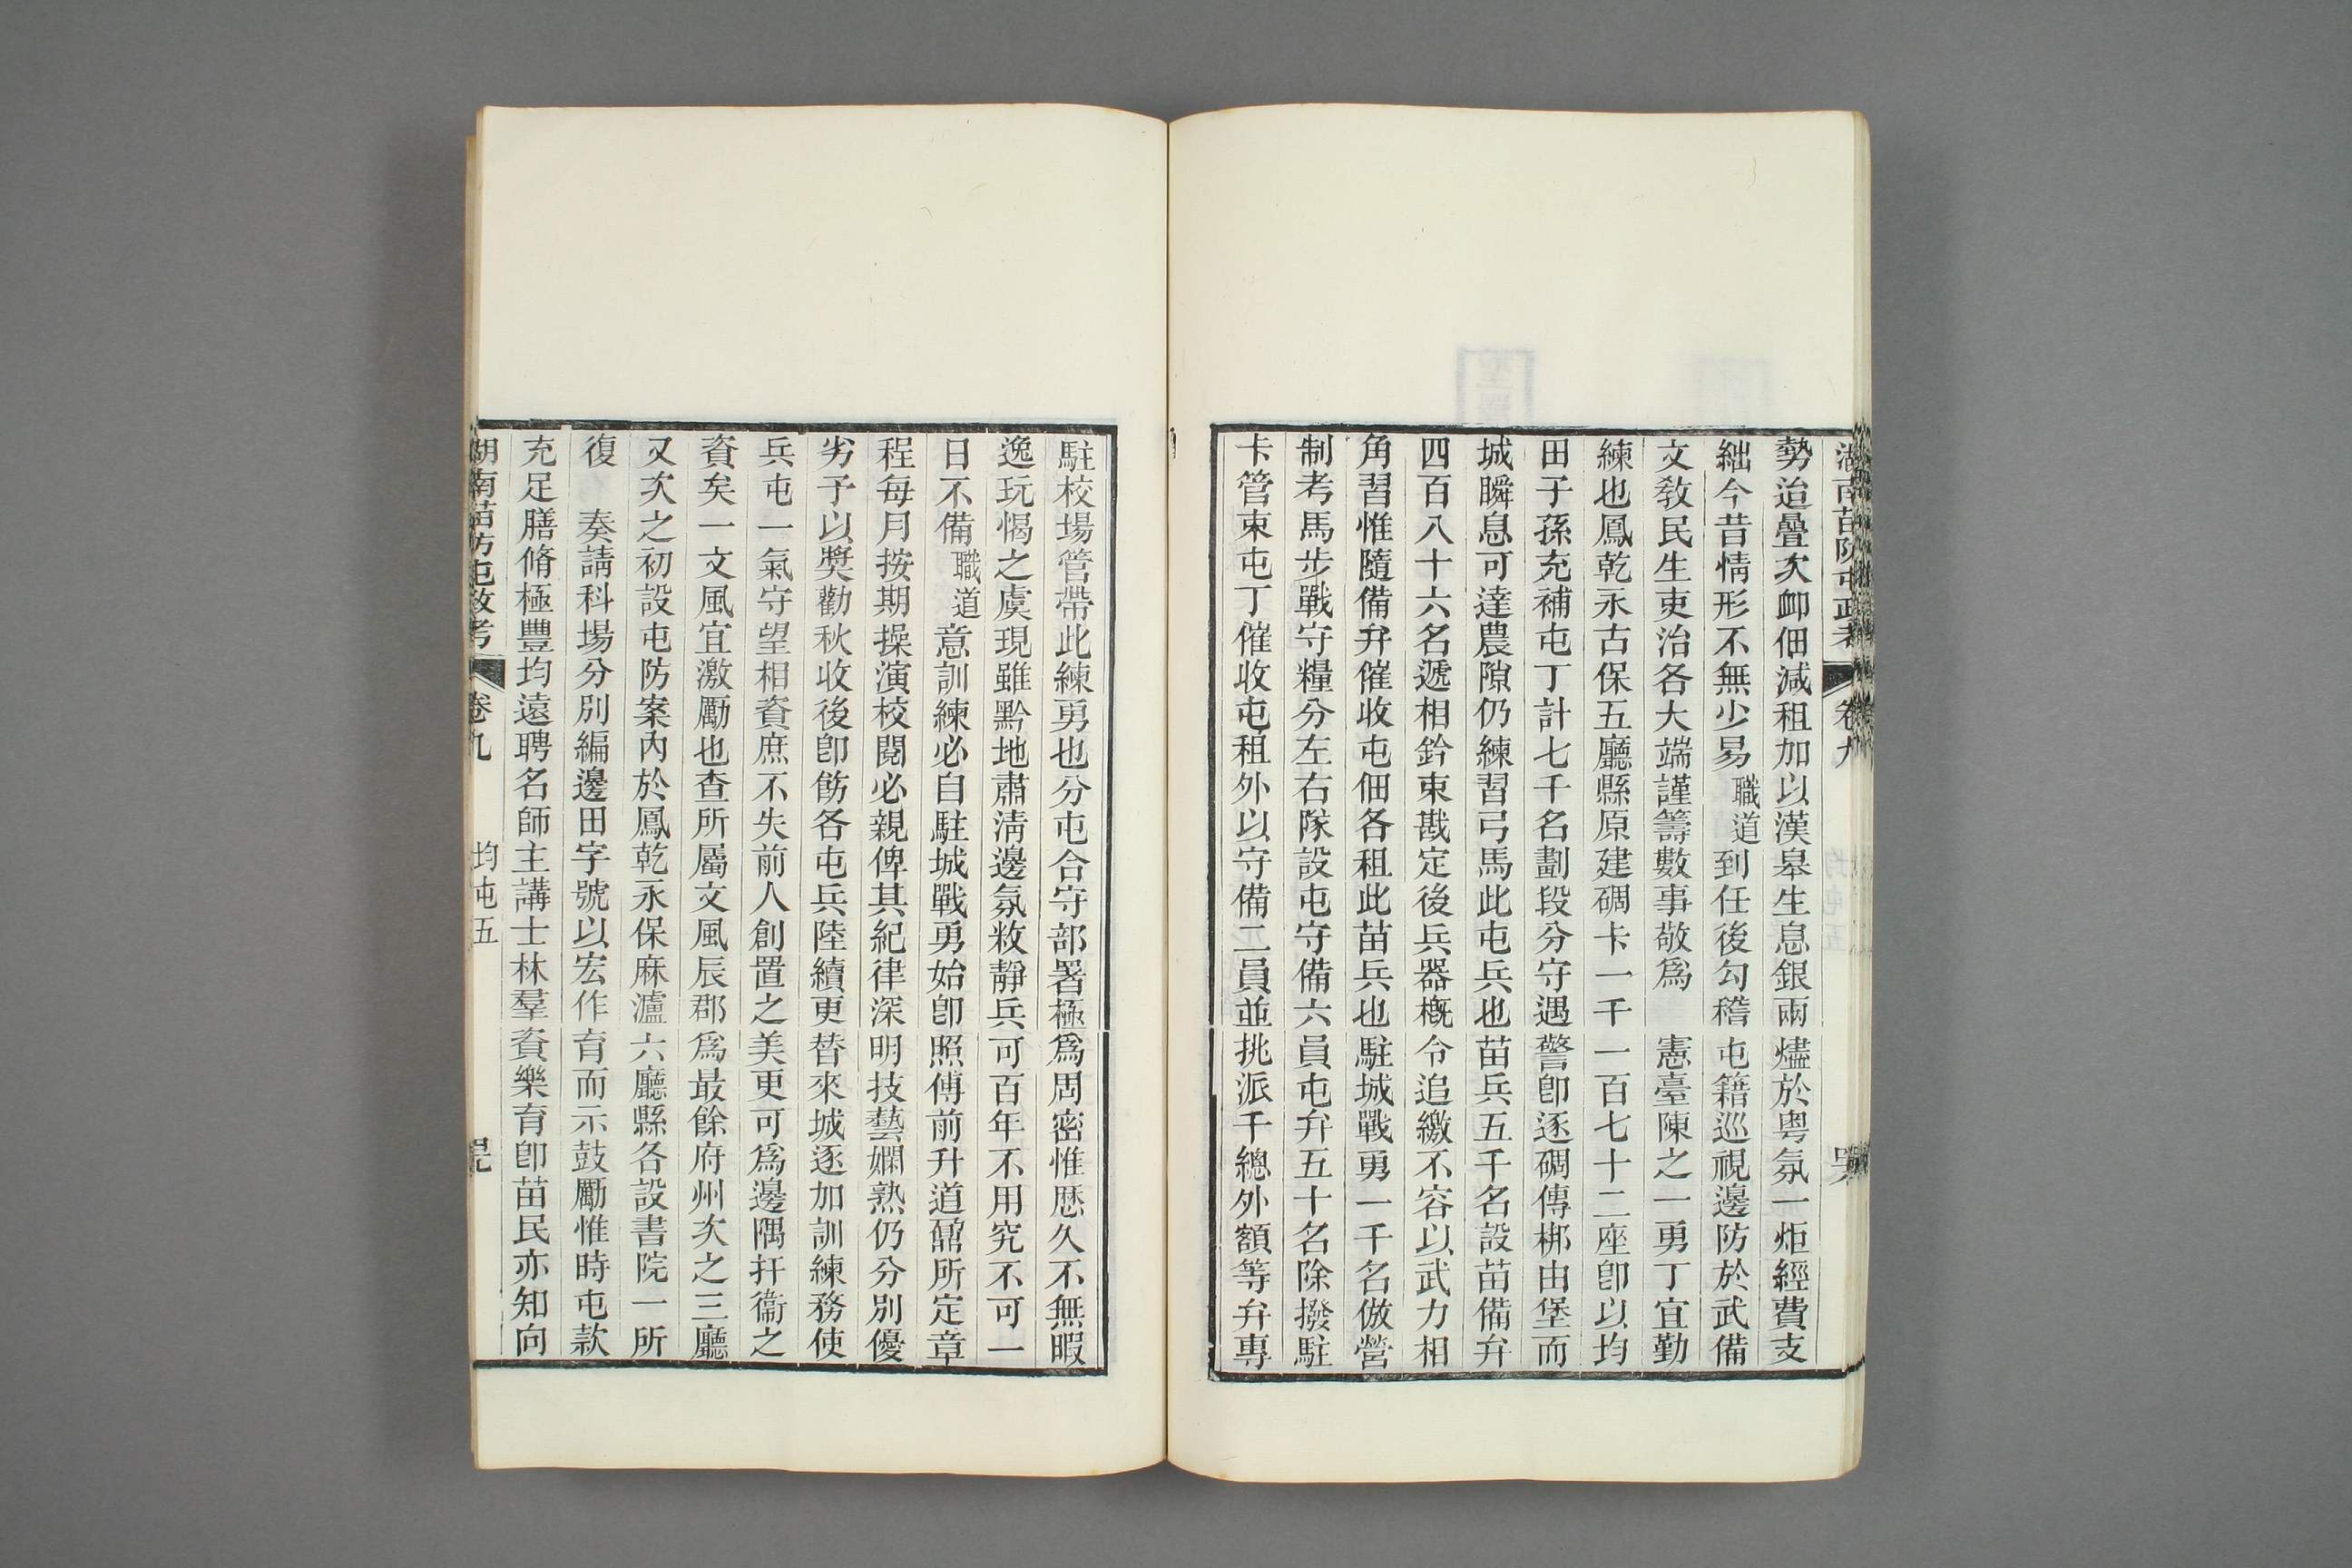 湖南苗防屯政考 卷九
勢迨疊次卹佃減租加以漢皋生息銀兩燼於粵氛一炬經費支
絀今昔情形不無少易職道到任後勾稽屯籍巡視邊防於武備
文教民生吏治各大端謹籌數事敬爲 憲臺陳之一勇丁宜勤
練也鳳乾永古保五廳縣原建碉卡一千一百七十二座卽以均
田子孫充補屯丁計七千名劃段分守遇警卽逐碉傳梆由堡而
城瞬息可達農隙仍練習弓馬此屯兵也苗兵五千名設苗備弁
四百八十六名遞相鈐束戡定後兵器槪令追繳不容以武力相
角習惟隨備弁催收屯佃各租此苗兵也駐城戰勇一千名倣營
制考馬步戰守糧分左右隊設屯守備六員屯弁五十名除撥駐
卡管束屯丁催收屯租外以守備二員並挑派千總外額等弁專
駐校場管帶此練勇也分屯合守部署極爲周密惟歷久不無暇
逸玩愒之虞現雖黔地肅淸邊氛敉靜兵可百年不用究不可一
日不備職道意訓練必自駐城戰勇始卽照傅前升道鼐所定章
程每月按期操演校閱必親俾其紀律深明技藝嫻熟仍分別優
劣予以奬勸秋收後卽飭各屯兵陸續更替來城逐加訓練務使
兵屯一氣守望相資庶不失前人創置之美更可爲邊隅扞衞之
資矣一文風宜激勵也查所屬文風辰郡爲最餘府州次之三廳
又次之初設屯防案內於鳳乾永保麻瀘六廳縣各設書院一所
復 奏請科場分別編邊田字號以宏作育而示鼓勵惟時屯款
充足膳脩極豐均遠聘名師主講士林羣資樂育卽苗民亦知向
湖南苗防屯政考 卷九 均屯五